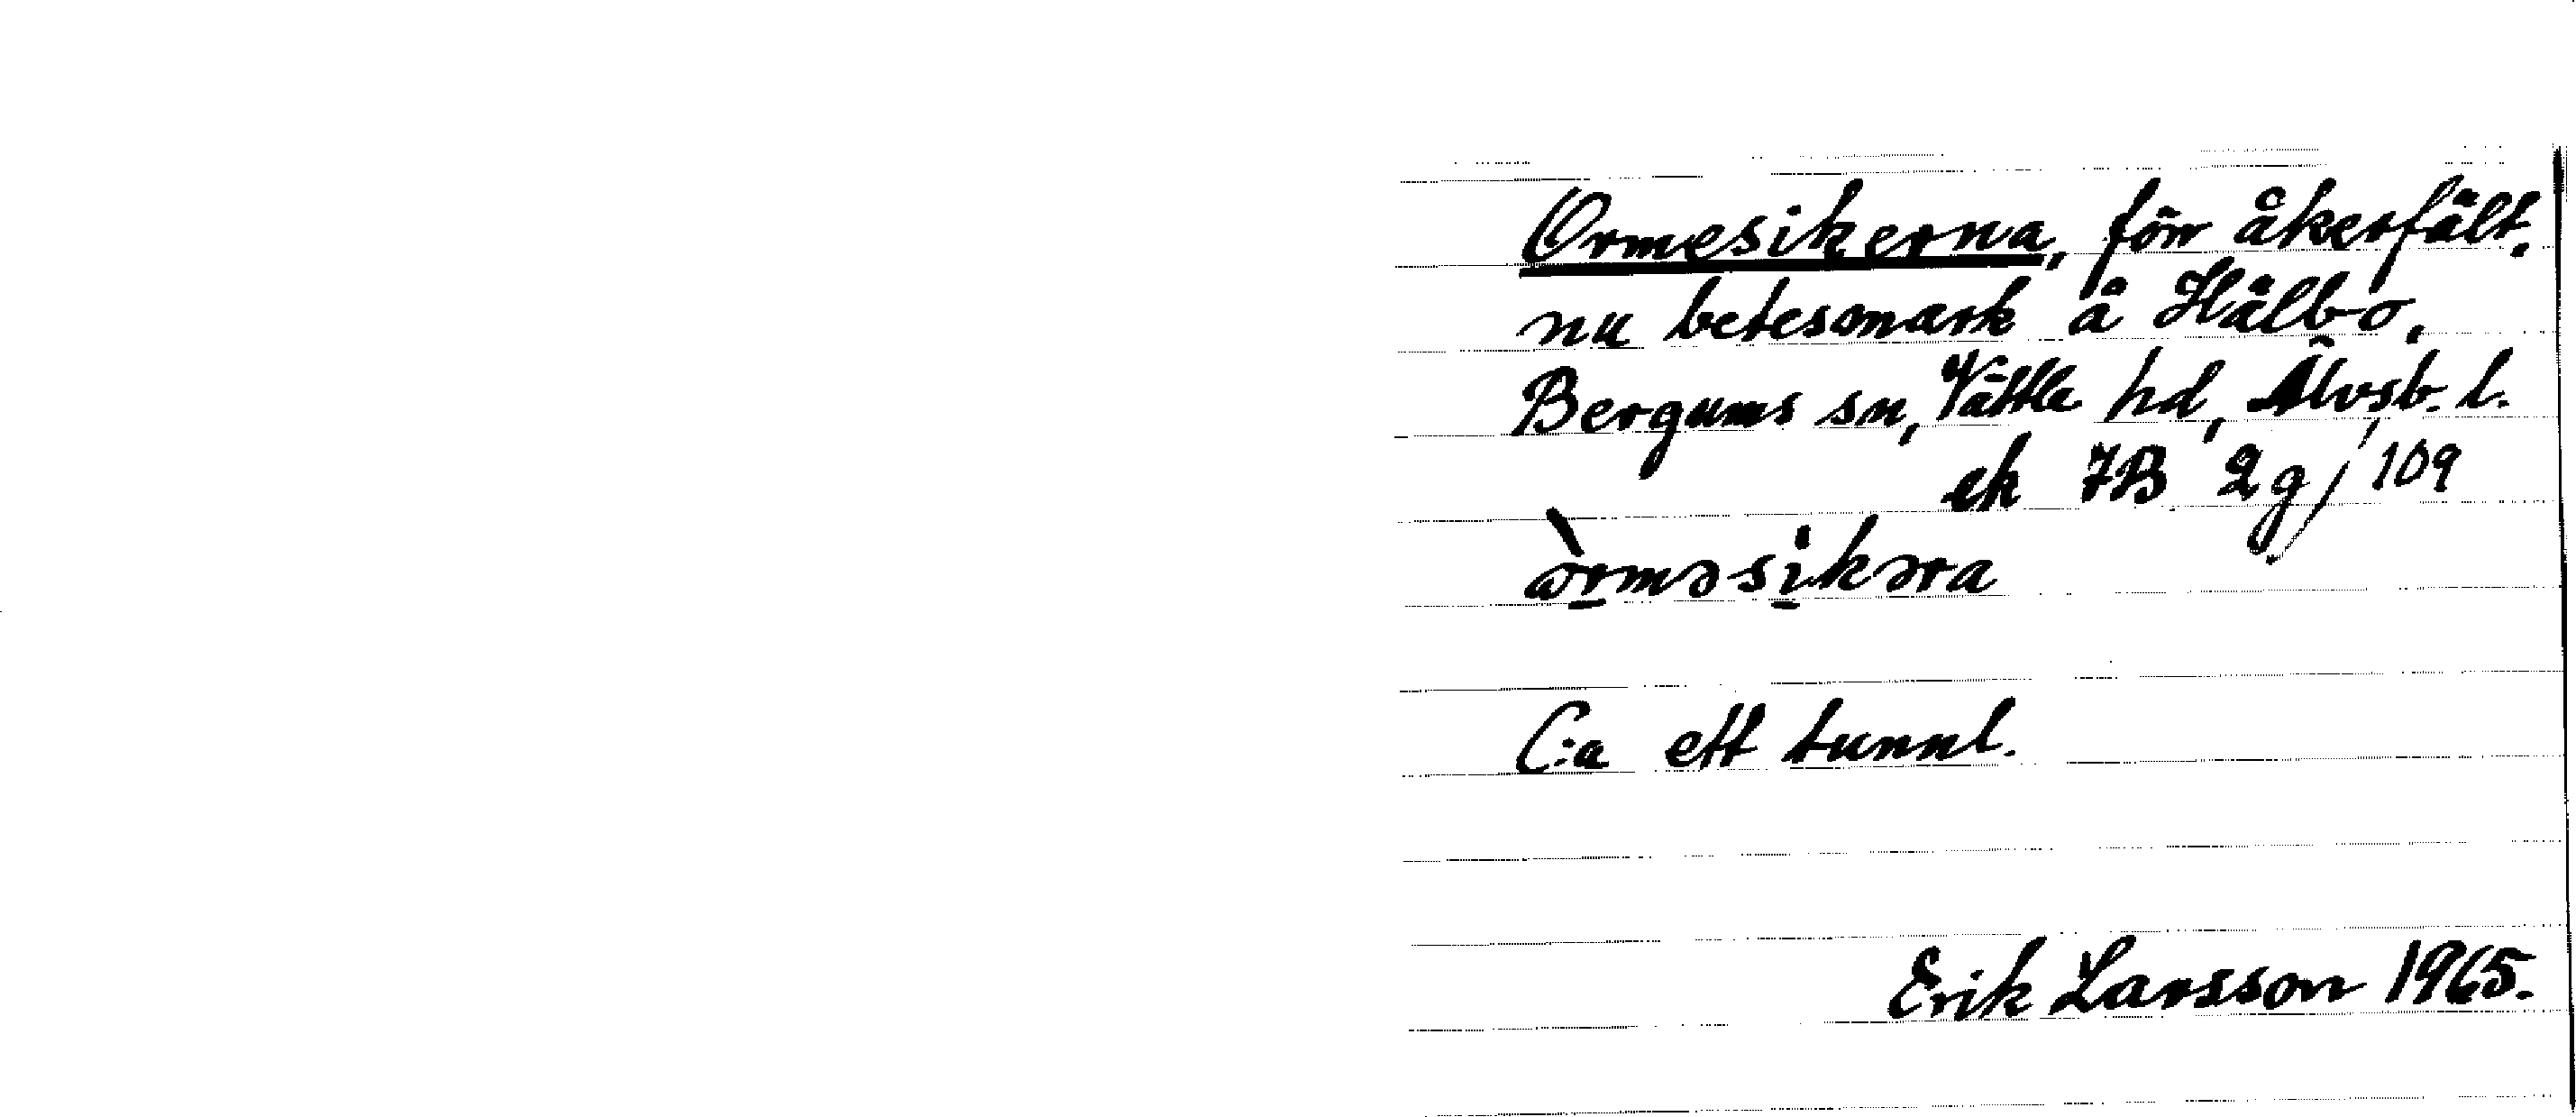 Ormesikerna, förr åkerfält,
nu betesmark å Hålbo,
Bergums sn, Vättle hd, Älvsb. l.
ek 7B 2g / 109
òrməsikəra
C:a ett tunnl.
Erik Larsson 1965.